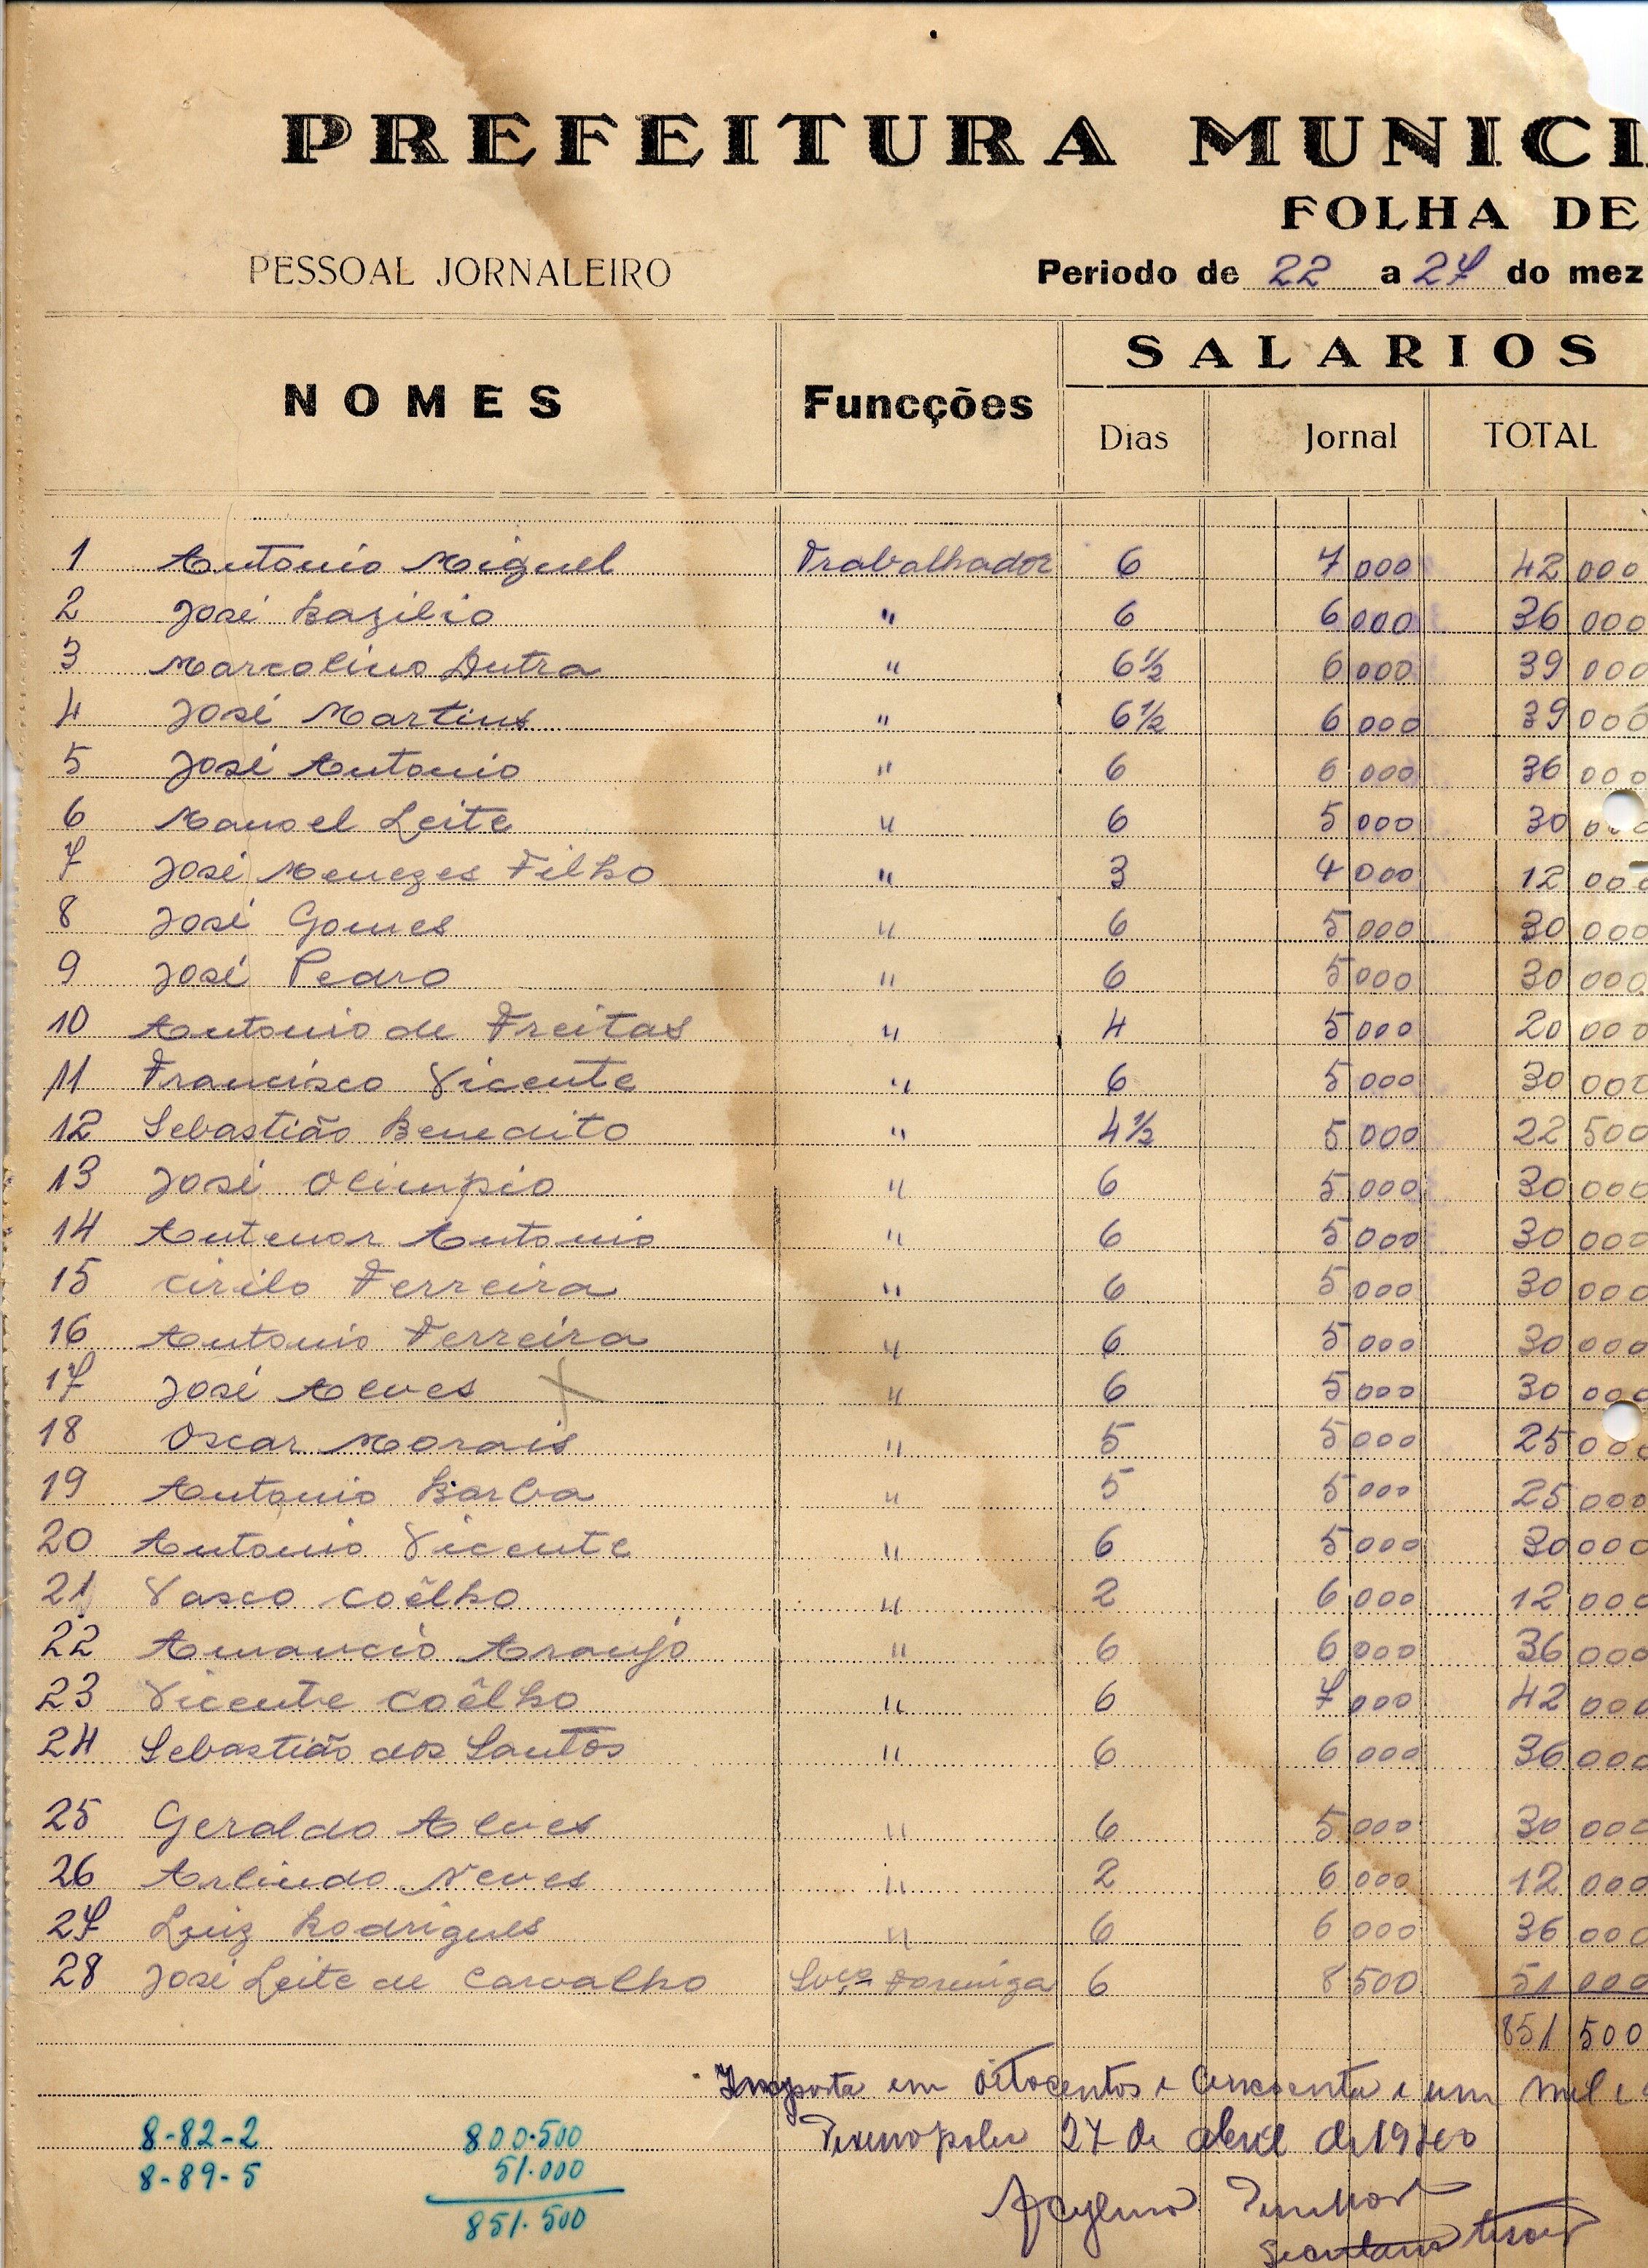 PREFEITURA MUNICI
FOLHA DE
PESSOAL JORNALEIRO Periodo de 22 a 27 do mez
SALARIOS
NOMES Funcções Dias Jornal TOTAL
1 Antonio Miguel Trabalhador 6 7 000 42 000
2 José Bazilio " 6 6 000 36 000
3 Marcolino Dutra " 6 1/2 6 000 39 000
4 José Martins " 6 1/2 6 000 39 000
5 José Antonio " 6 6 000 36 000
6 Manoel Leite " 6 5 000 30 000
7 José Menezes Filho " 3 4 000 12 000
8 José Gomes " 6 5 000 30 000
9 José Pedro " 6 5 000 30 000
10 Antonio de Freitas " 4 5 000 20 000
11 Francisco Vicente " 6 5 000 30 000
12 Sebastião Benedito " 4 1/2 5 000 22 500
13 José Olimpio " 6 5 000 30 000
14 Antenor Antonio " 6 5 000 30 000
15 Cirilo Ferreira " 6 5 000 30 000
16 Antonio Ferreira " 6 5 000 30 000
17 José Alves X " 6 5 000 30 000
18 Oscar Morais " 5 5 000 25 000
19 Antonio Barba " 5 5 000 25 000
20 Antonio Vicente " 6 5 000 30 000
21 Vasco Coêlho " 2 6 000 12 000
22 Amancio Araujo " 6 6 000 36 000
23 Vicente Coêlho " 6 7 000 42 000
24 Sebastião dos Santos " 6 6 000 36 000
25 Geraldo Alves " 6 5 000 30 000
26 Arlindo Neves " 2 6 000 12 000
27 Luiz Rodrigues " 6 6 000 36 000
28 José Leite de Carvalho Svço Formiga 6 8 500 51 000
851 500
Importa em oitocentos e cincoenta e um mil e
8-82-2 800.500 27 de abril de 1940
8-89-5 51.000
851.500